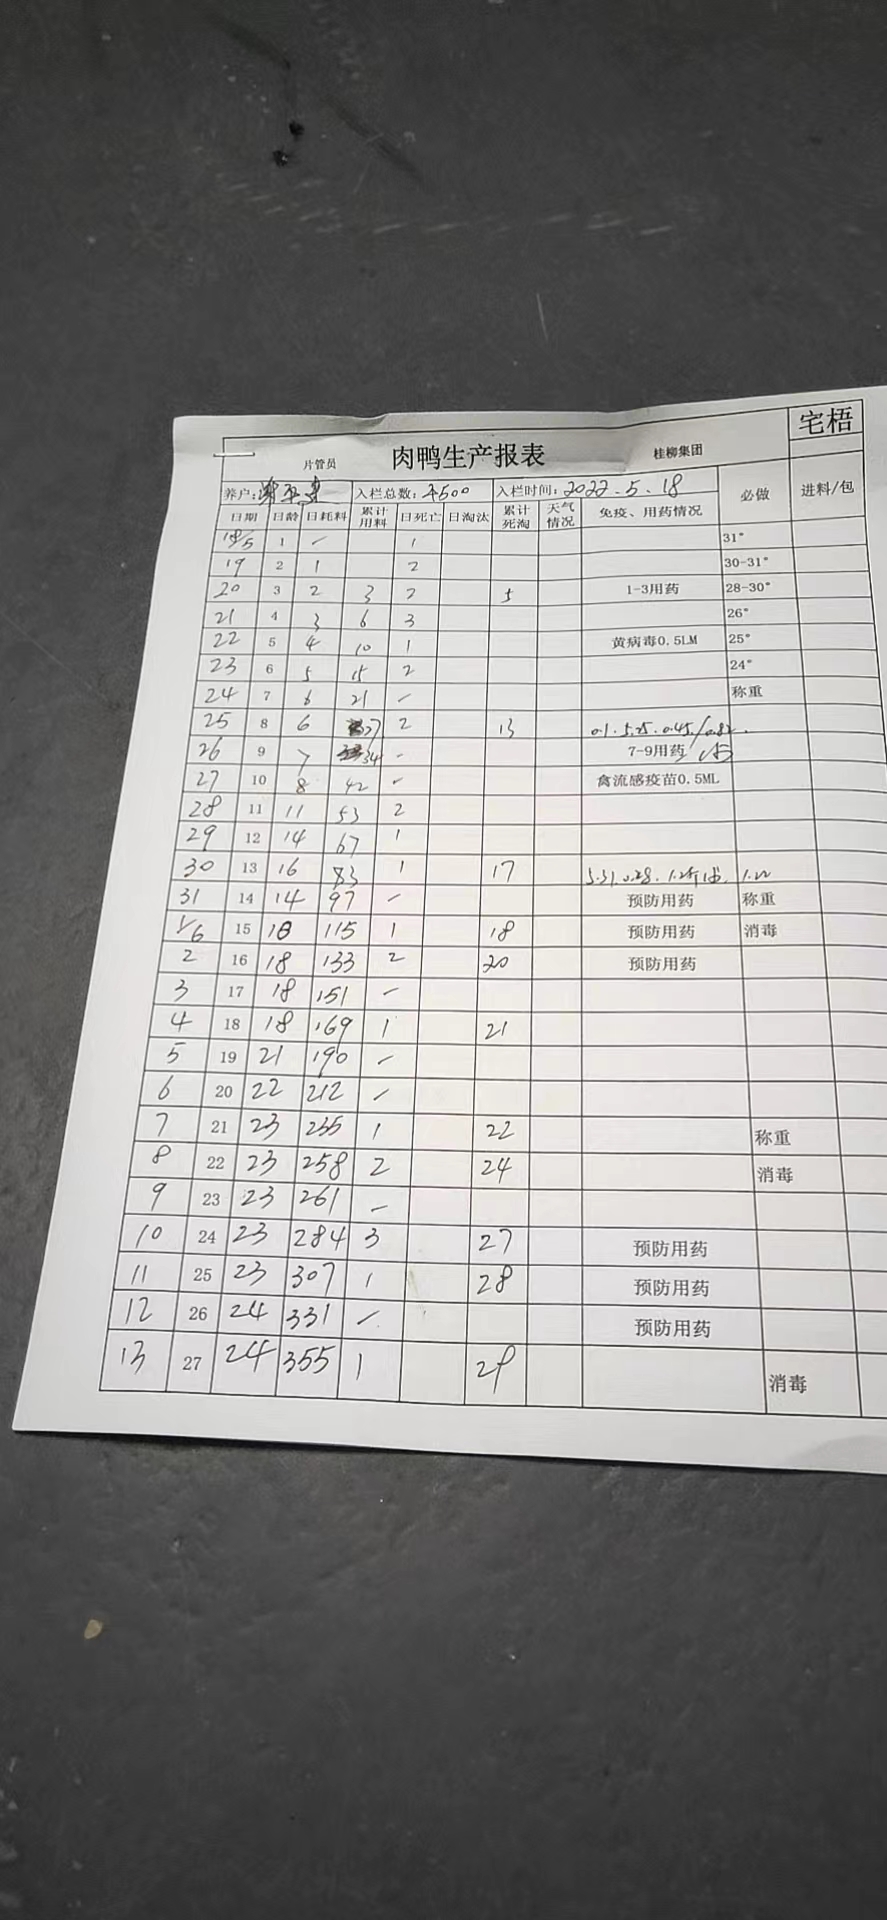 宅梧
片管员 肉鸭生产报表 桂柳集团
养户: 入栏总数: 4500 入栏时间: 2022.5.18 必做 进料/包
日期 日龄 日耗料 累计用料 日死亡 日淘汰 累计死淘 天气情况 免疫、用药情况
18/5 1 - 1 31°
19 2 1 2 30-31°
20 3 2 3 2 5 1-3用药 28-30°
21 4 3 6 3 26°
22 5 4 10 1 黄病毒0.5LM 25°
23 6 5 15 2 24°
24 7 6 21 - 称重
25 8 6 27 2 13
26 9 7 34 - 7-9用药
27 10 8 42 - 禽流感疫苗0.5ML
28 11 11 53 2
29 12 14 67 1
30 13 16 83 1 17
31 14 14 97 - 预防用药 称重
1/6 15 18 115 1 18 预防用药 消毒
2 16 18 133 2 20 预防用药
3 17 18 151 -
4 18 18 169 1 21
5 19 21 190 -
6 20 22 212 -
7 21 23 235 1 22 称重
8 22 23 258 2 24 消毒
9 23 23 261 -
10 24 23 284 3 27 预防用药
11 25 23 307 1 28 预防用药
12 26 24 331 - 预防用药
13 27 24 355 1 29 消毒